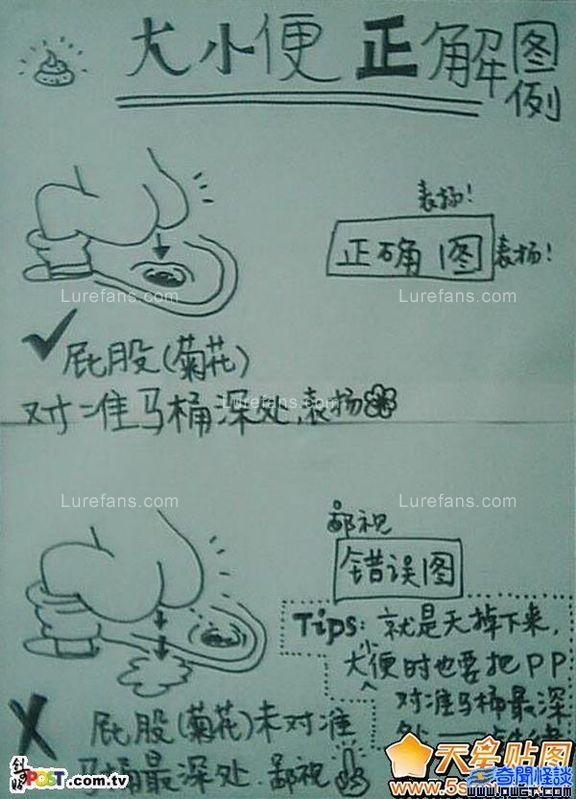 大小便正解图例
表扬!
正确图 表扬!
屁股(菊花)
对准马桶深处,表扬
鄙视
错误图
Tips:就是天掉下来,
大小便时也要把PP
对准马桶最深
处
屁股(菊花)未对准
马桶最深处 鄙视
Lurefans.com
Lurefans.com
Lurefans.com
Lurefans.com
Lurefans.com
POST.com.tv
天拿贴图
奇聞怪談